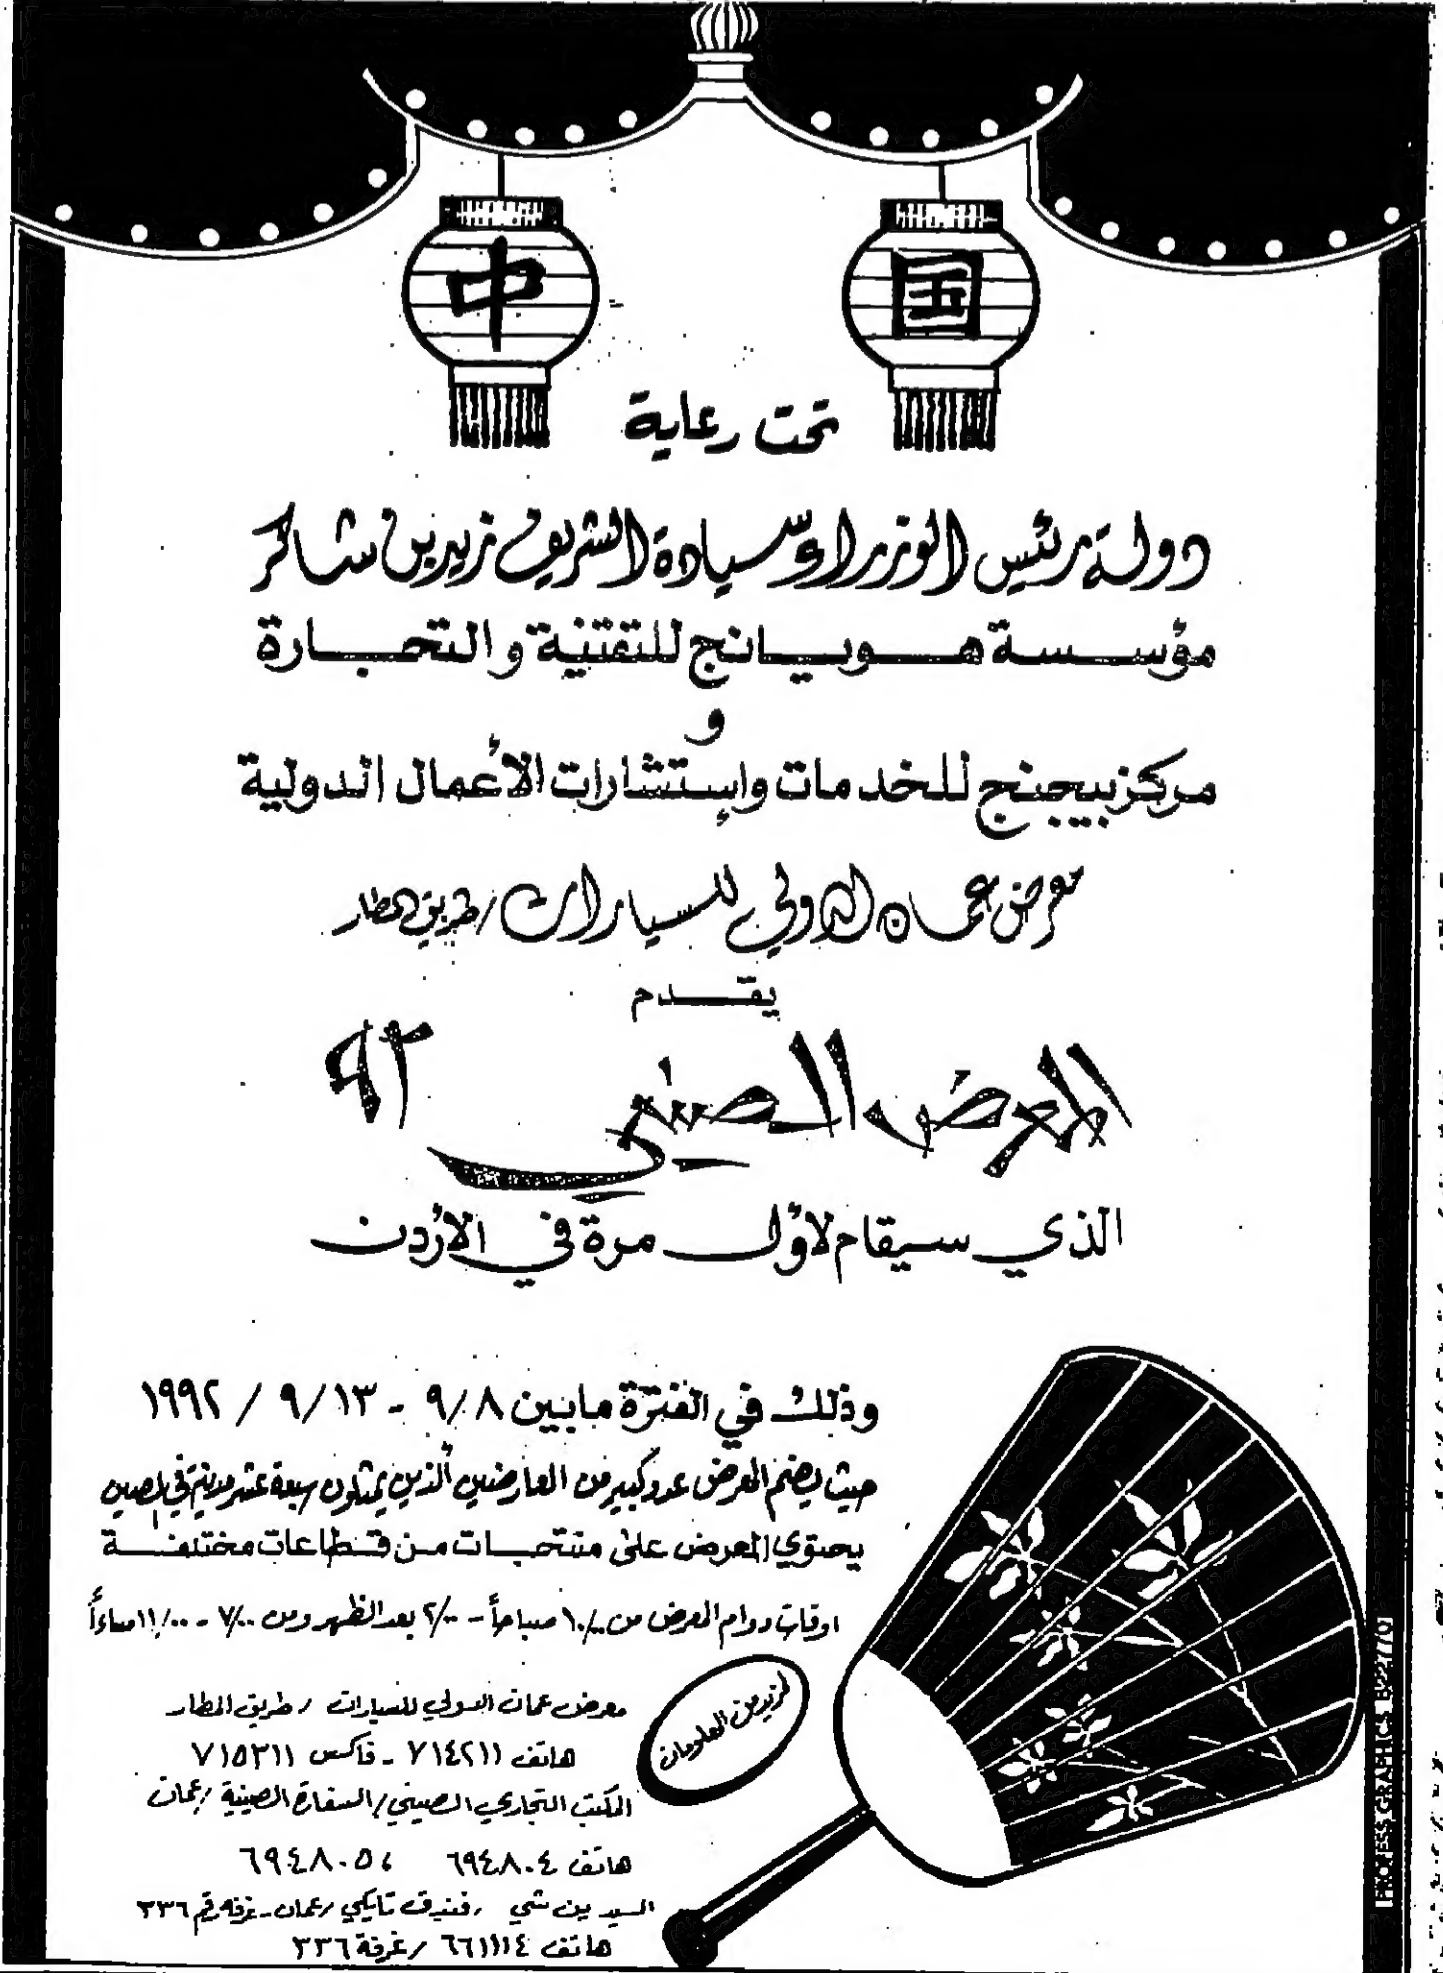 中 国
تحت رعاية
دولة رئيس الوزراء سيادة الشريف زيد بن شاكر
مؤسسة هوبيانج للتقنية والتجارة
و
مركز بيجنج للخدمات وإستشارات الأعمال الدولية
معرض عمان الدولي للسيارات / طريق المطار
يقدم
المعرض الصيني ٩٢
الذي سيقام لأول مرة في الأردن
وذلك في الفترة مابين ٩/٨ - ٩/١٣ / ١٩٩٢
حيث يضم المعرض عدد كبير من العارضين الذين يمثلون سبعة عشر مدينة في الصين
يحتوي المعرض على منتجات من قطاعات مختلفة
اوقات دوام المعرض من ١٠/٠٠ صباحاً - ٢/٠٠ بعد الظهر ومن ٧/٠٠ - ١١/٠٠ مساءاً
لمزيد من المعلومات
معرض عمان الدولي للسيارات / طريق المطار
هاتف ٧١٤٢١١ - فاكس ٧١٥٣١١
المكتب التجاري الصيني / السفارة الصينية / عمان
هاتف ٦٩٤٨٠٤ ، ٦٩٤٨٠٥
السيد ين شي / فندق تايكي / عمان - غرفة رقم ٣٣٦
هاتف ٦٦١١١٤ / غرفة ٣٣٦
PROFESS GRAPHICS 822770